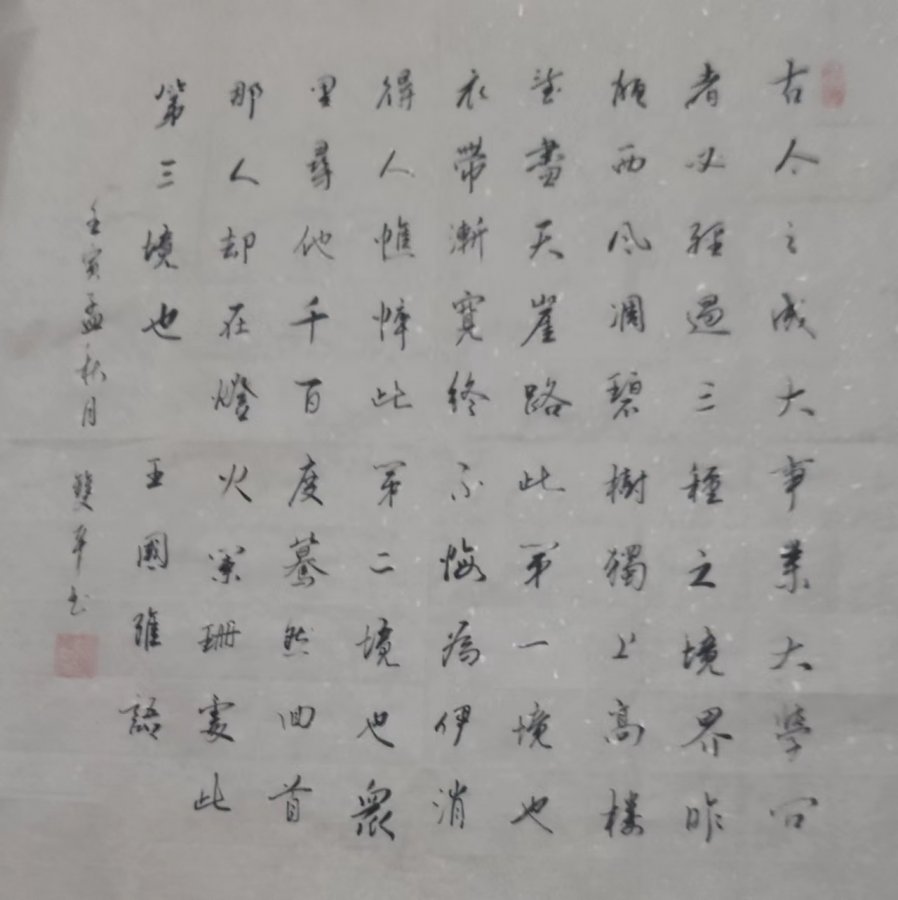 古今之成大事業大學问
者必經過三種之境界昨
夜西風凋碧樹獨上高樓
望盡天崖路此第一境也
衣帶漸寬終不悔為伊消
得人憔悴此第二境也眾
里尋他千百度驀然回首
那人却在燈火闌珊處此
第三境也 王國維語
壬寅孟秋月 雙平书